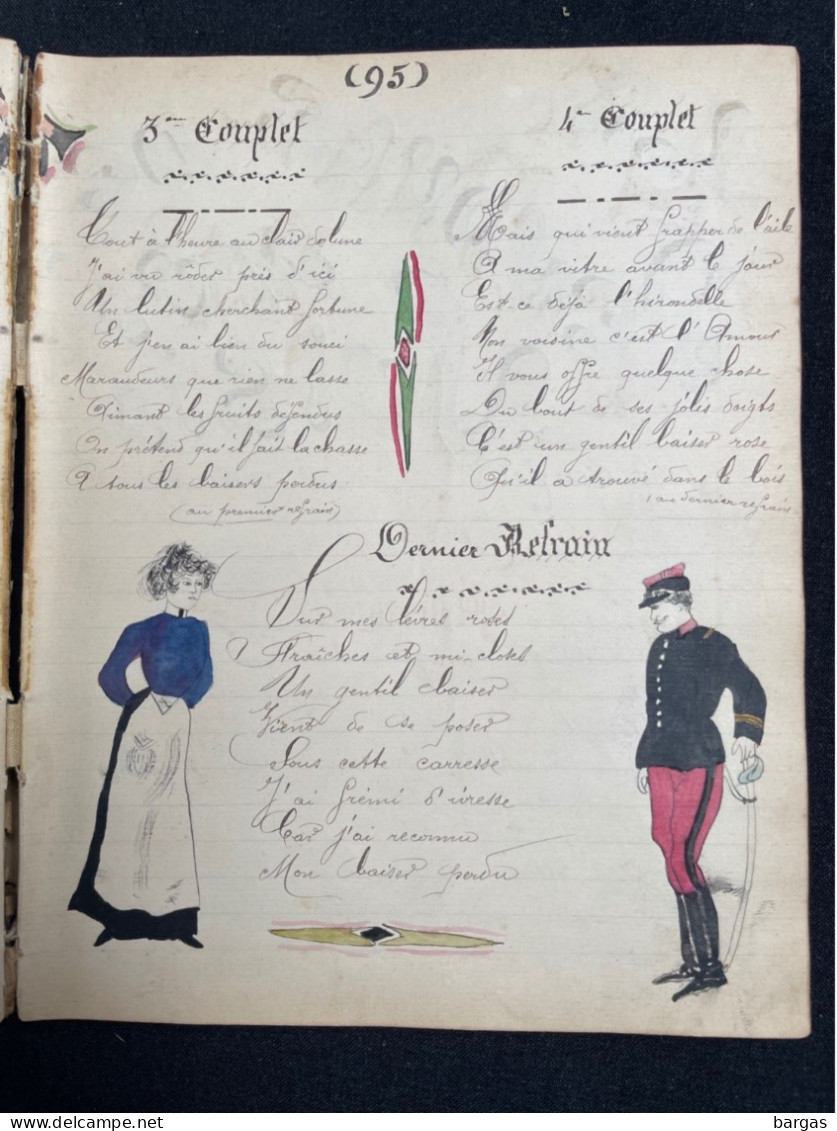 (95)
3me Couplet
Tout à l'heure au clair de lune
J'ai vu rôder près d'ici
Un lutin cherchant fortune
Et j'en ai bien du souci
Maraudeurs que rien ne lasse
Aimant les fruits défendus
On prétend qu'il fait la chasse
A tous les baisers perdus
(au premier refrain)
4me Couplet
Mais qui vient frapper de l'aile
A ma vitre avant le jour
Est-ce déjà l'hirondelle
Non voisine c'est l'Amour
Il vous offre quelque chose
Du bout de ses jolis doigts
C'est un gentil baiser rose
Qu'il a trouvé dans le bois
(au dernier refrain
Dernier Refrain
Sur mes lèvres roses
Fraîches et mi-closes
Un gentil baiser
Vient de se poser
Sous cette carresse
J'ai frémi d'ivresse
Car j'ai reconnu
Mon baiser perdu
bargas